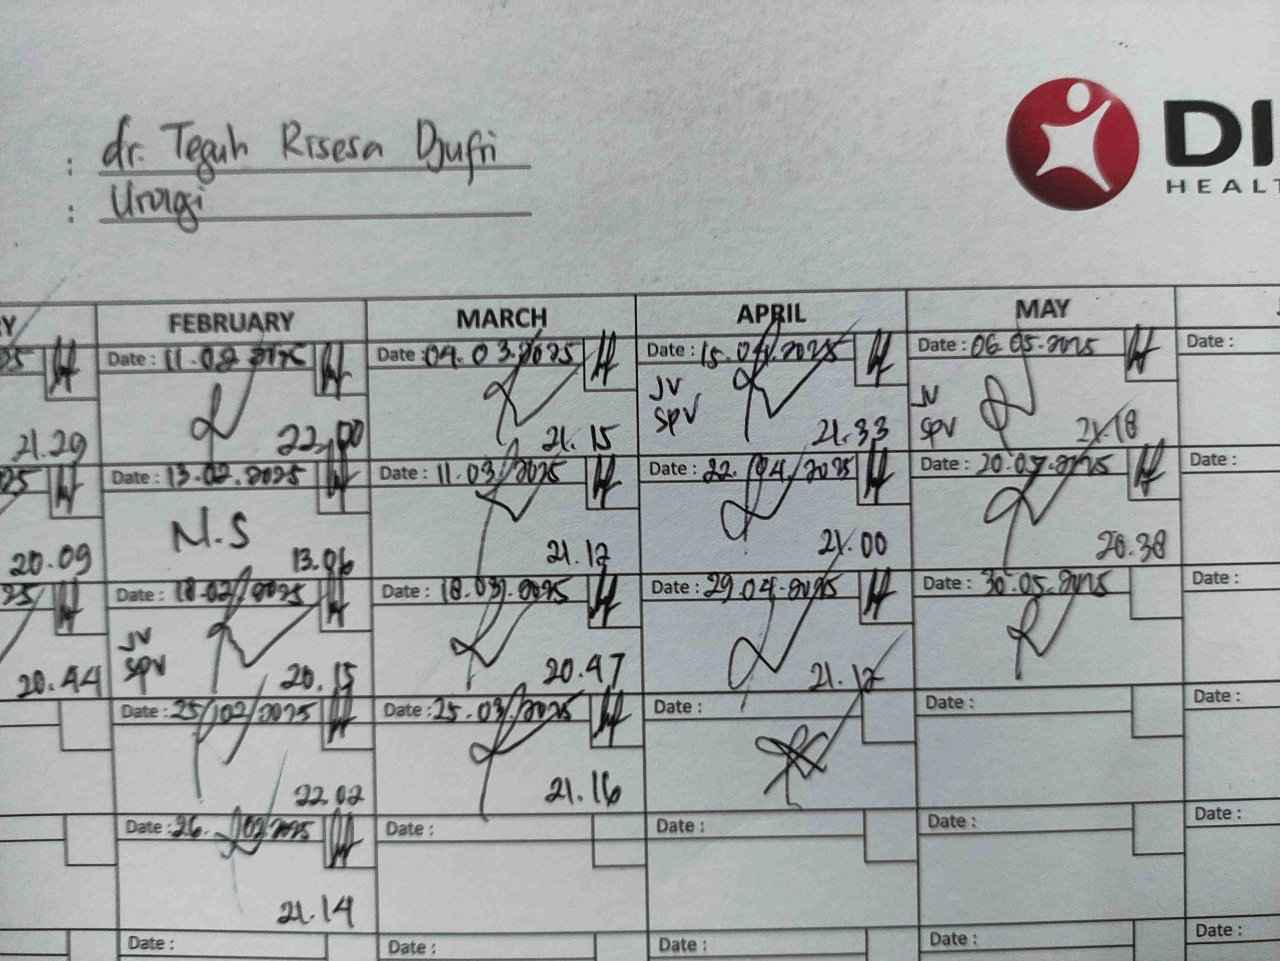 : dr. Teguh Risesa Djufri
: Urologi
DI
HEALT
Y FEBRUARY MARCH APRIL MAY
25 Date : 11.02.2025 Date : 04.03.2025 Date : 15.04.2025 Date : 06.05.2025 Date :
JV JV
SPV SPV
21.29 22.00 21.15 21.33 21.18
25 Date : 13.02.2025 Date : 11.03.2025 Date : 22.04.2025 Date : 20.05.2025 Date :
N.S
20.09 13.06 21.12 21.00 20.38
25 Date : 18.02.2025 Date : 18.03.2025 Date : 29.04.2025 Date : 30.05.2025 Date :
JV
SPV
20.44 20.15 20.47 21.12
Date : 25/02/2025 Date : 25.03.2025 Date : Date : Date :
22.02 21.16
Date : 26.02.2025 Date : Date : Date : Date :
21.14
Date : Date : Date : Date : Date :